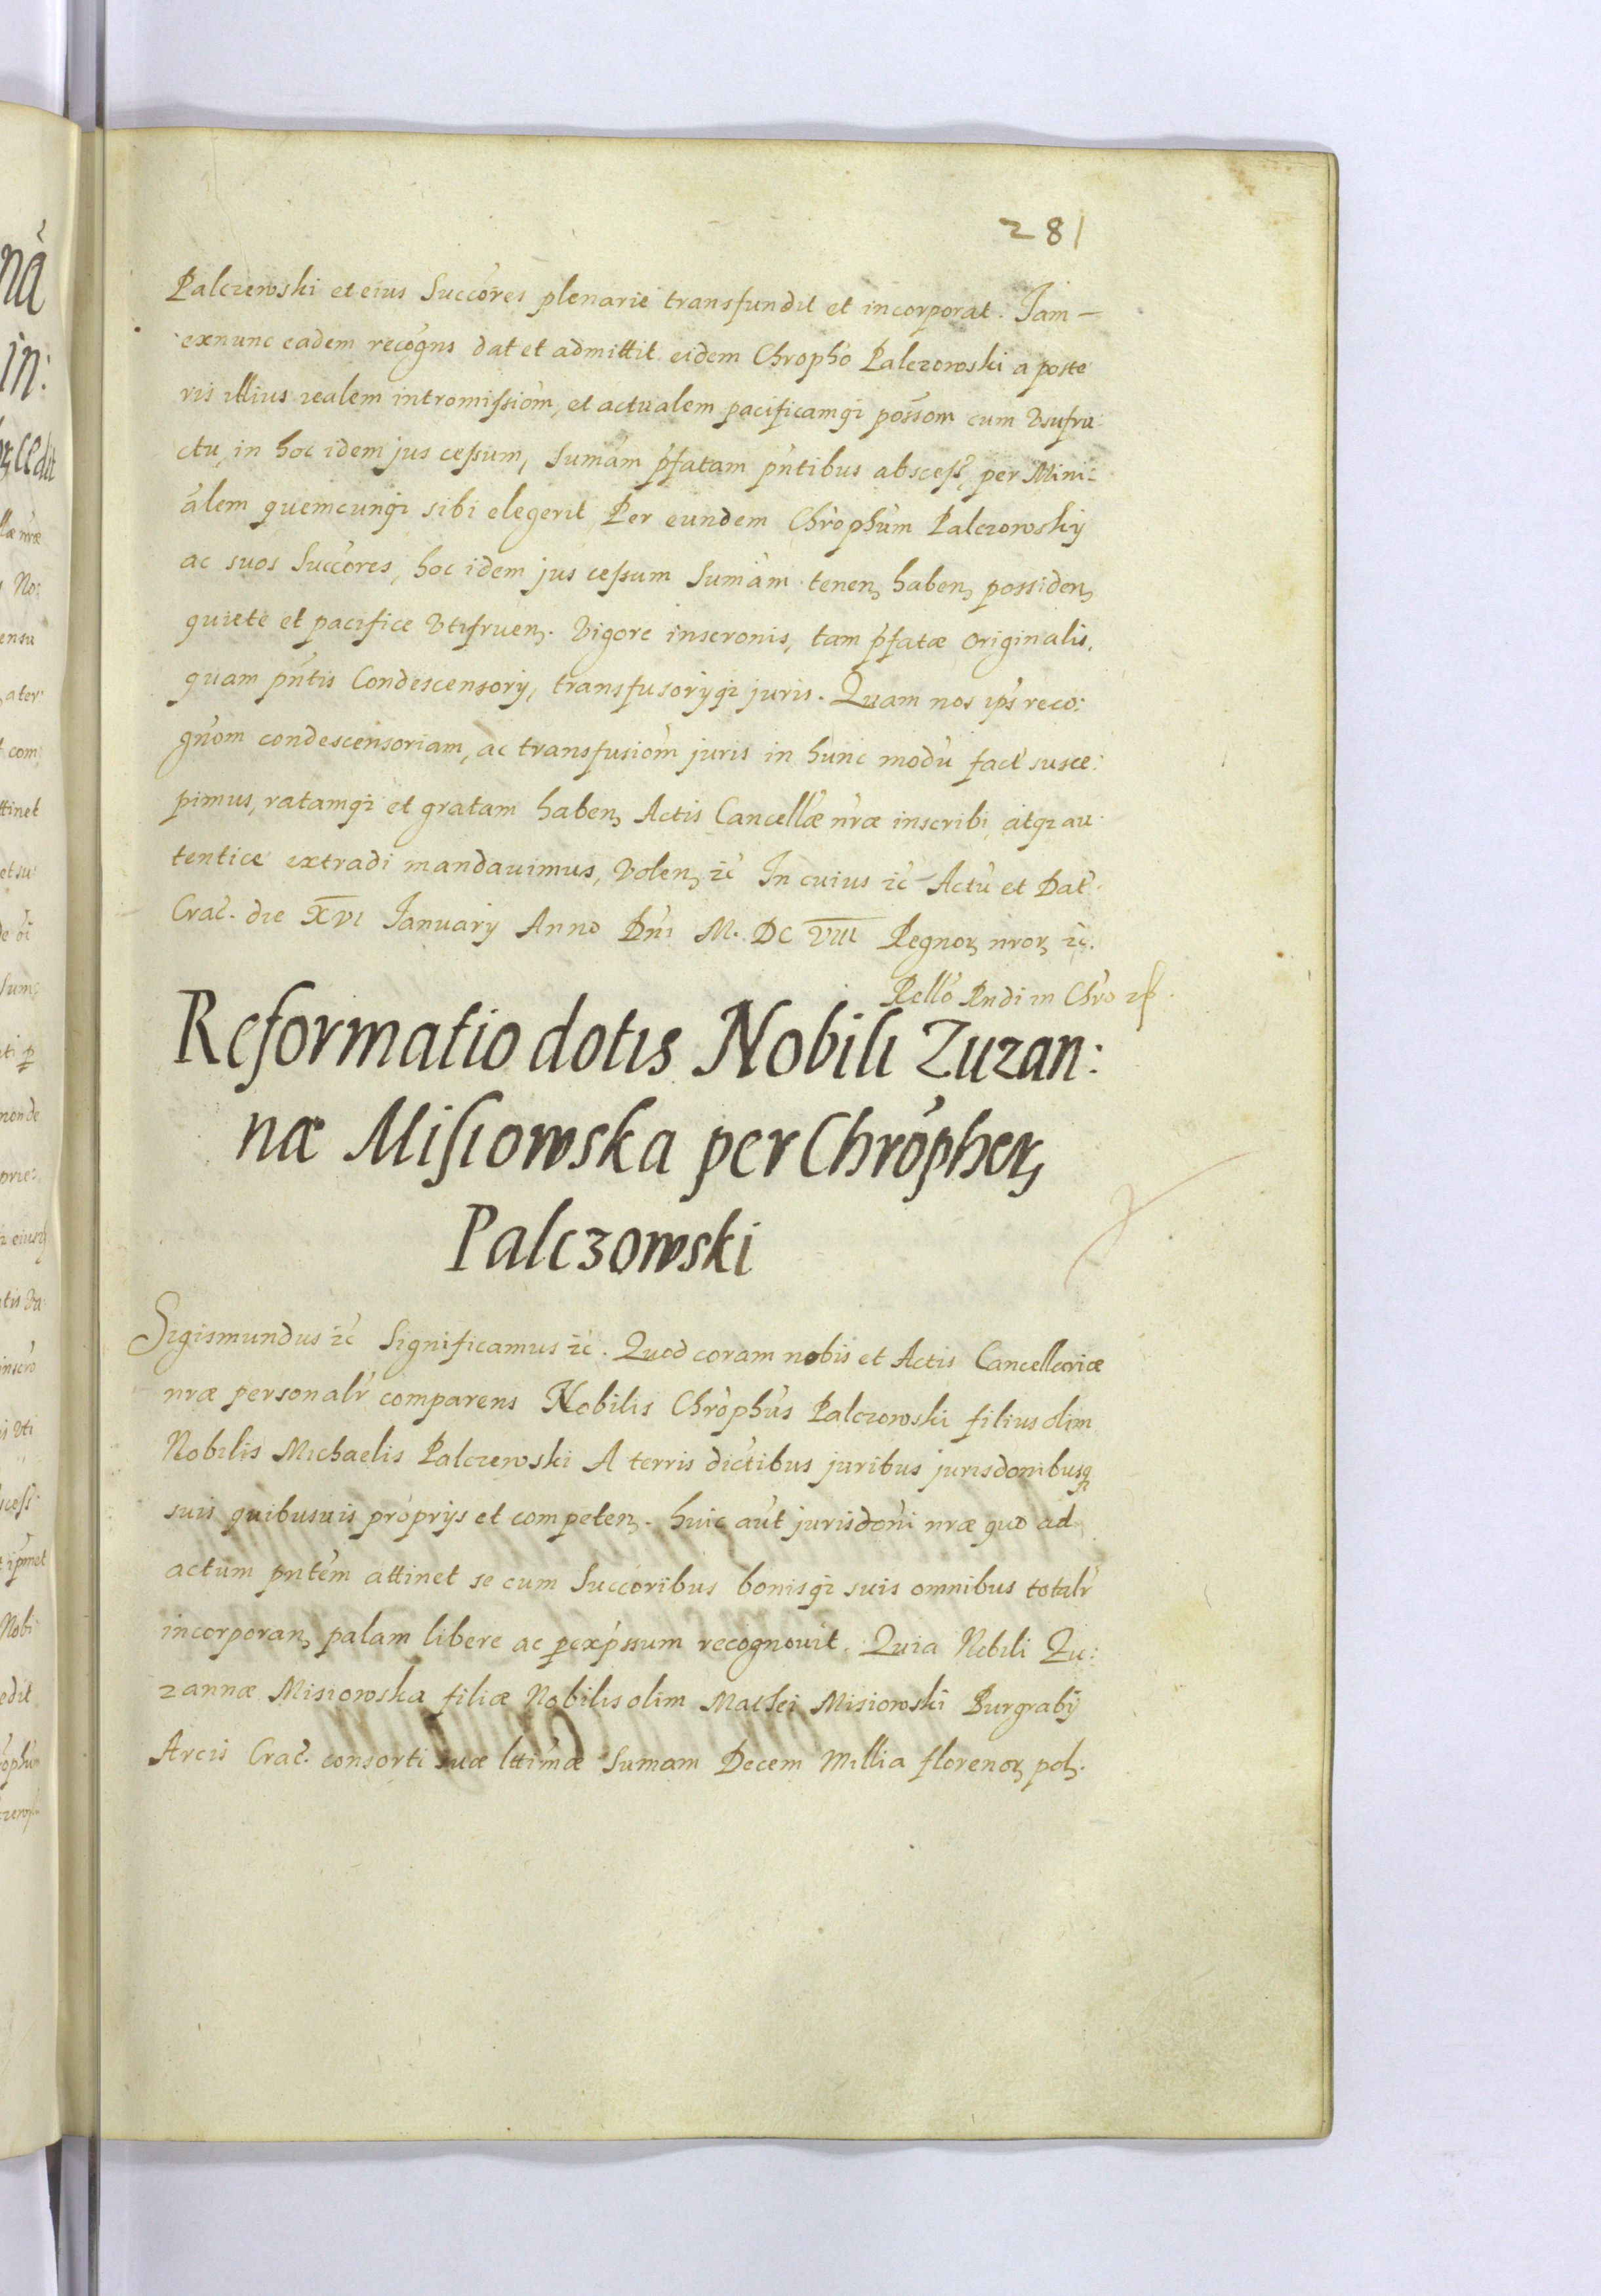 281
Palczewski et eius Succóres plenarie transfundit et incorporat. Jam –
exnunc eadem recógns dat et admittit eidem Chrophó Palczowski a poste
ris illius realem intromissióm, et actualem pacificamqз possóm cum Usufru:
ctu, in hoc idem jus cessum, Sumám pŕfatam pńtibus abscess, per Mini:
álem quemcunqз sibi elegerit, Per eundem Chróphúm Palczowskÿ
ac suos Succóres, hoc idem jus cessum Sumám tenenꝫ habenꝫ possidenꝫ
quiete et pacifice Utifruenꝫ. Vigore inscronis, tam pŕfatæ originalis,
quam pńtis Condescensorÿ, transfusorÿqз juris. Quam nos ips reco:
gńom condescensoriam, ac transfusióm juris in hunc modú fact susce:
pimus, ratamqз et gratam habenꝫ Actis Cancellæ nŕæ inscribi, átqз au
tentice extradi mandavimus, Volenꝫ ꝛc In cuius ꝛc Actú et Dat.
Crac. die XVI Januarÿ Anno Dńi M. DC VIII Regnoꝝ nroꝝ ꝛc.
Relló Rndi in Chŕo
Reformatio dotis Nobili Zuzan:
næ Misiowska per Chrópherꝫ
Palczowski
Sigismundus ꝛc Significamus ꝛc. Quod coram nobis et Actis Cancellariæ
nræ personalŕ comparens Nobilis Chróphús Palczowski filius olim
Nobilis Michaelis Palczewski A terris dictibus juribus jurisdonibusqз
suis quibusvis proprÿs et competenꝫ. huic aút jurisdońi nræ quo ad
actum pntém attinet se cum Succoribus bonisqз suis omnibus totalŕ
incorporanꝫ, palam libere ac ꝑexpŕssum recognovit. Quia Nobili Zu:
zannæ Misiowska filiæ Nobilis olim Mathei Misiowski Burgrabÿ
Arcis Crac. consorti suæ lttimæ Sumam Decem Millia florenoꝝ pol.